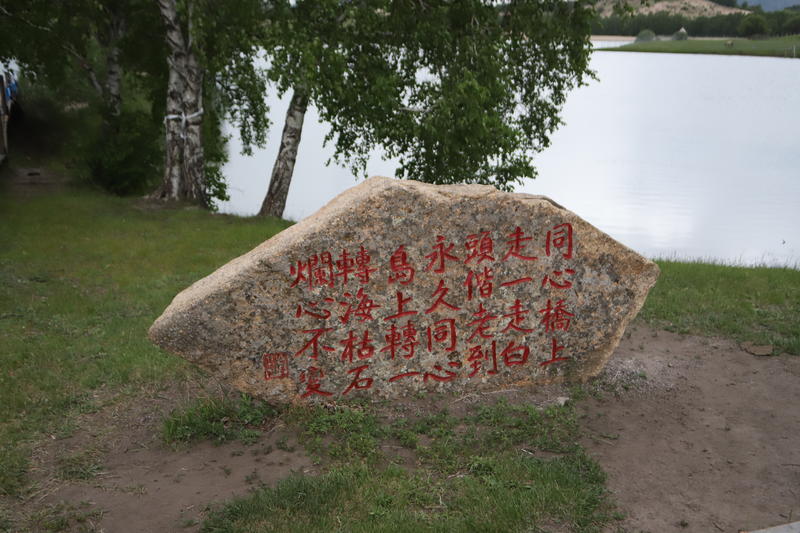 同心橋上
走一走白
頭偕老到
永久同心
島上轉一
轉海枯石
爛心不变